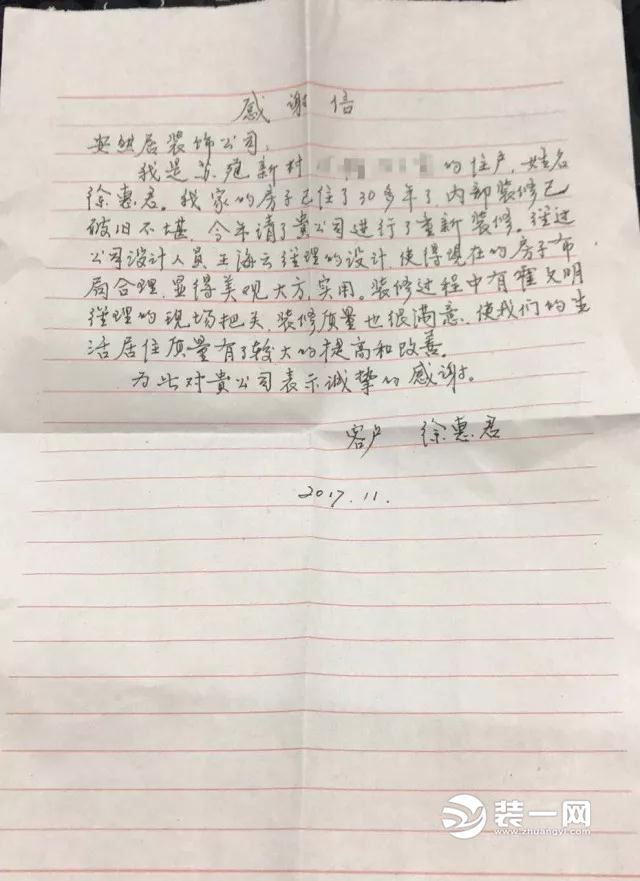 感谢信
安然居装饰公司,
我是苏苑新村 的住户,姓名
徐惠君。我家的房子已住了30多年了,内部装修已
破旧不堪,今年请了贵公司进行了重新装修。经过
公司设计人员王海云经理的设计,使得现在的房子布
局合理,显得美观大方,实用。装修过程中有 文明
经理的现场把关,装修质量也很满意,使我们的生
活居住质量有了较大的提高和改善。
为此对贵公司表示诚挚的感谢。
客户 徐惠君
2017.11.
装一网
www.zhuangyi.com